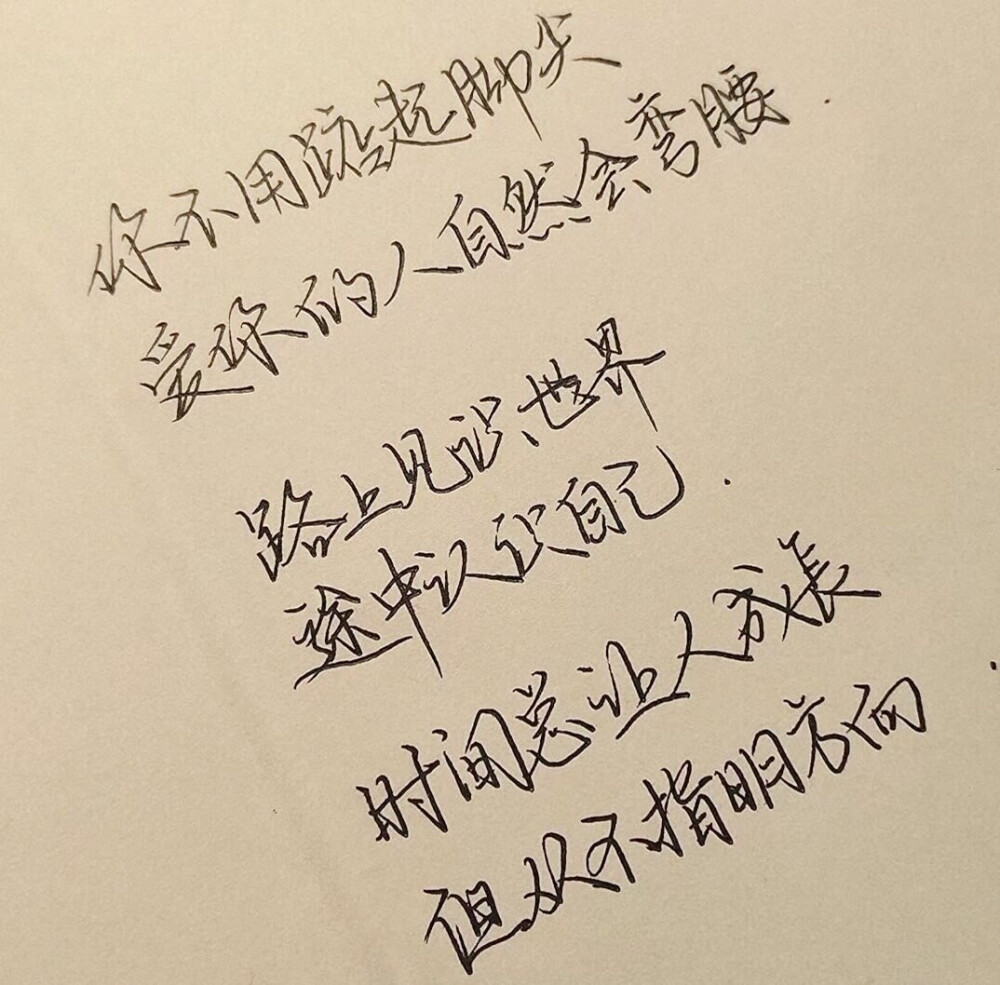 你不用踮起脚尖
爱你的人自然会弯腰
路上见识世界
途中认识自己
时间总让人成長
但从不指明方向